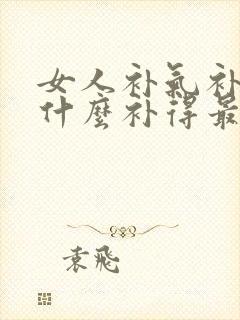 女人补氣补
什麼补得最
袁飛